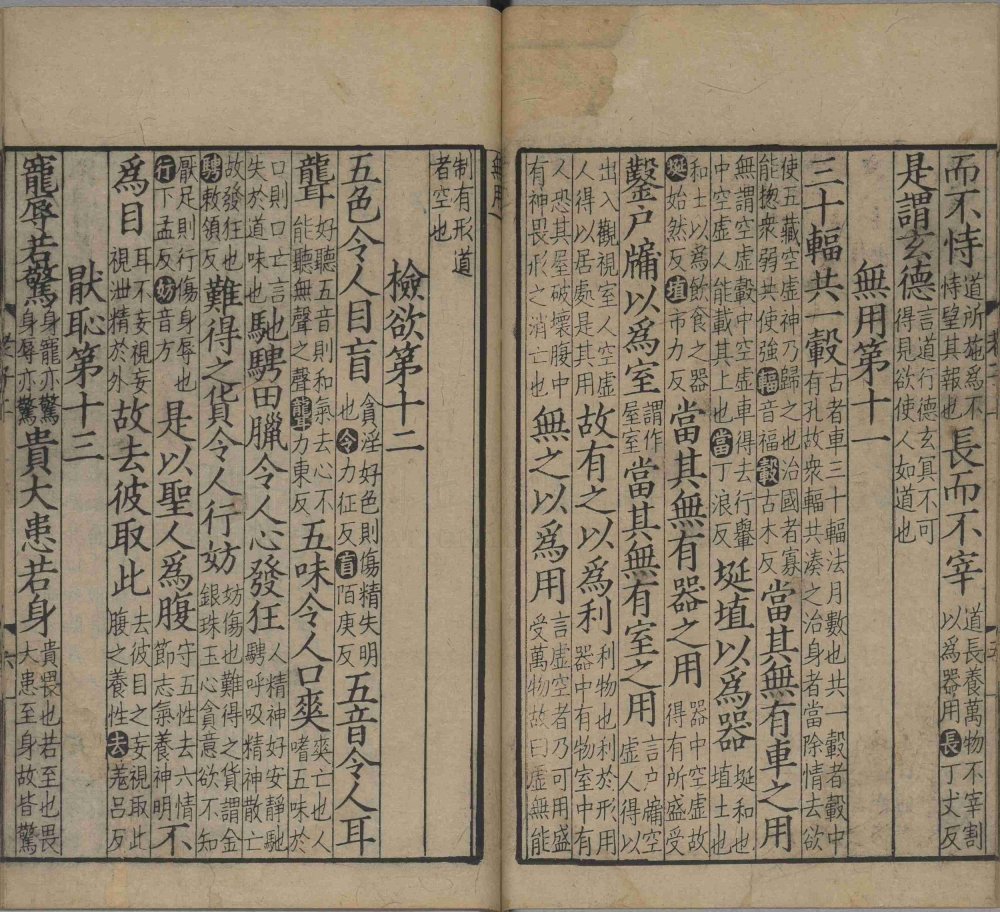 而不恃道所施爲不恃望其報也長而不宰道長養萬物不宰割以爲器用長丁丈反
是謂玄德言道行德玄冥不可得見欲使人如道也
無用第十一
三十輻共一轂古者車三十輻法月數也共一轂者轂中有孔故衆輻共湊之治身者當除情去欲
使五藏空虛神乃歸之也治國者寡能揔衆弱共使強輻音福轂古木反當其無有車之用
無謂空虛轂中空虛車得去行轝中空虛人能載其上也當丁浪反埏埴以爲器埏和也埴土也
和土以爲飲食之器埏始然反埴市力反當其無有器之用器中空虛故得有所盛受
鑿戶牖以爲室謂作屋室當其無有室之用言戶牖空虛人得以
出入觀視室人空虛人得以居處是其用故有之以爲利利物也利於形用器中有物室中有
人恐其屋破壞腹中有神畏形之消亡也無之以爲用言虛空者乃可用盛受萬物故曰虛無能
無用
制有形道者空也
檢欲第十二
五色令人目盲貪淫好色則傷精失明也令力征反盲陌庚反五音令人耳
聾好聽五音則和氣去心不能聽無聲之聲聾力東反五味令人口爽爽亡也人嗜五味於
口則口亡言失於道味也馳騁田臘令人心發狂人精神好安靜馳騁呼吸精神散亡
故發狂也騁敕領反難得之貨令人行妨妨傷也難得之貨謂金銀珠玉心貪意欲不知
厭足則行傷身辱也行下孟反妨音方是以聖人爲腹守五性去六情節志氣養神明不
爲目耳不妄視妄視泄精於外故去彼取此去彼目之妄視取此腹之養性去羗呂反
猒恥第十三
寵辱若驚身寵亦驚身辱亦驚貴大患若身貴畏也若至也畏大患至身故皆驚